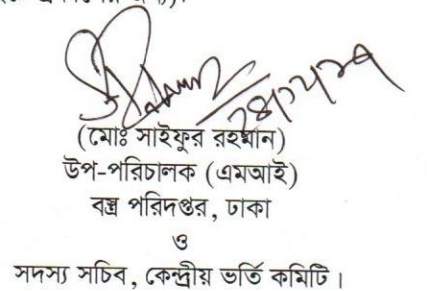 (মোঃ সাইফুর রহমান)
উপ-পরিচালক (এমআই)
বস্ত্র পরিদপ্তর, ঢাকা
ও
সদস্য সচিব, কেন্দ্রীয় ভর্তি কমিটি।